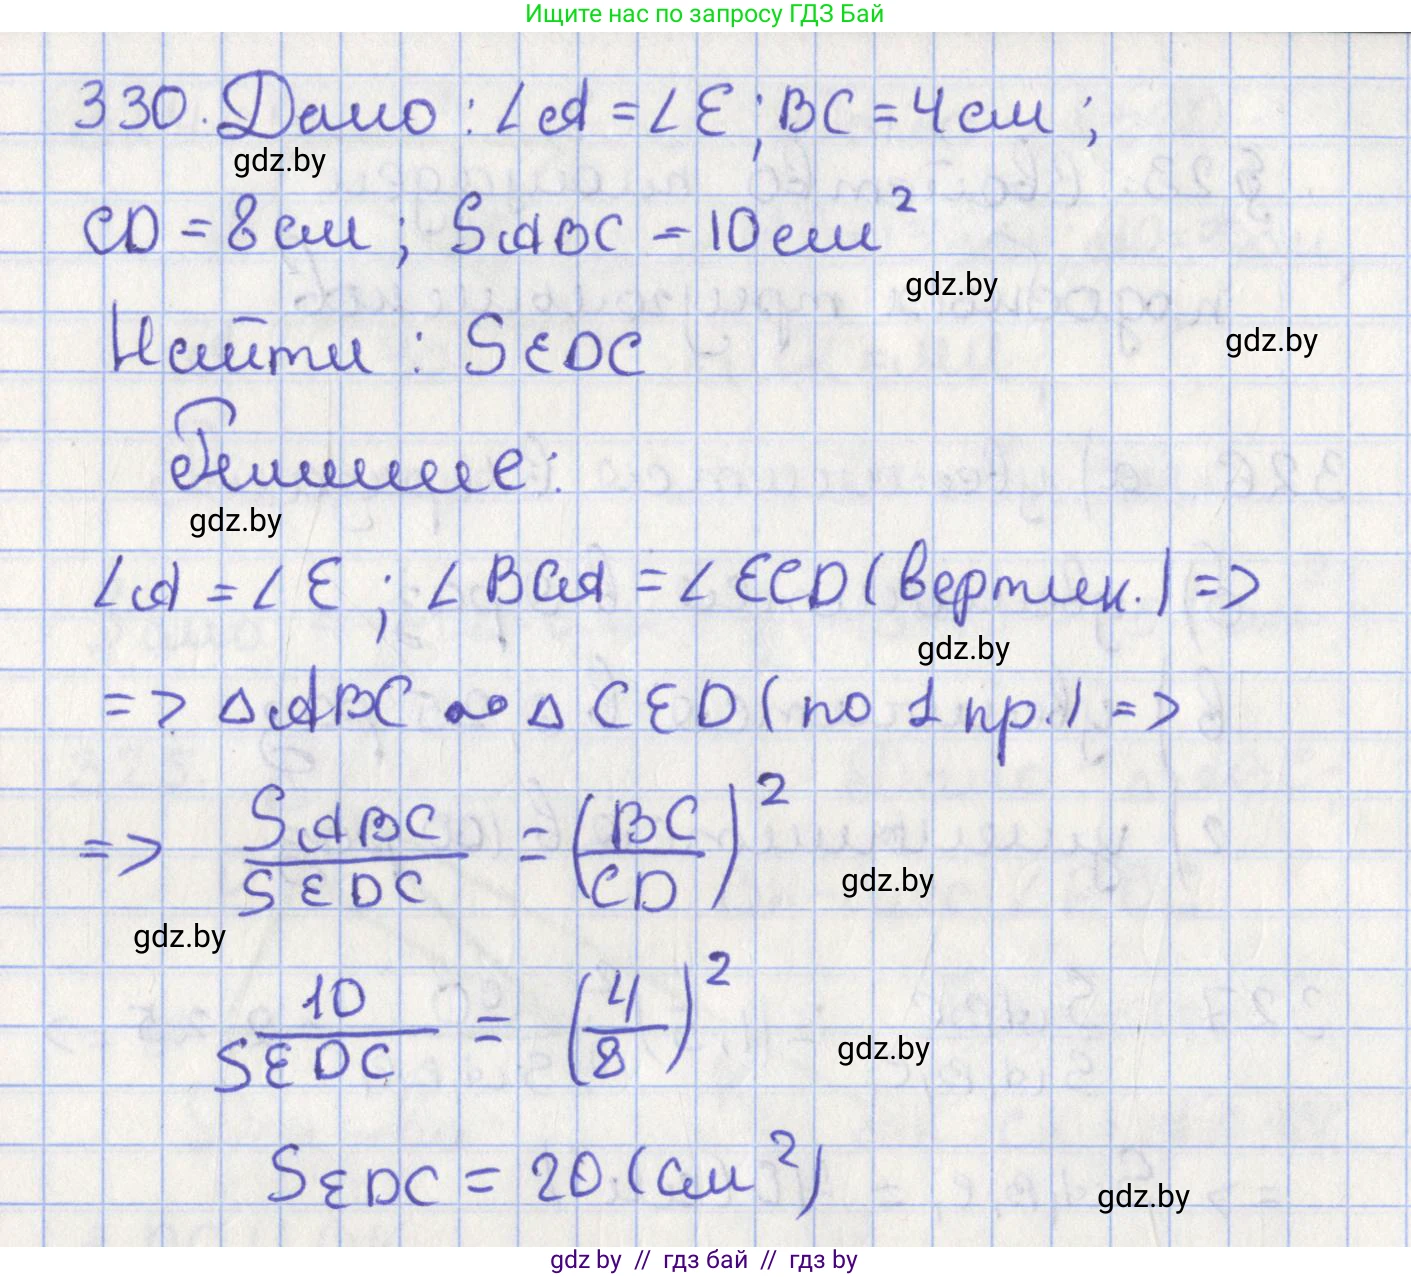 Ищите нас по запросу ГДЗ Бай
330. Дано: ∠A = ∠E; BC = 4 см;
gdz.by
CD = 8 см; SABC = 10 см²
gdz.by
Найти: SEDC
gdz.by
Решение:
gdz.by
∠A = ∠E; ∠BCA = ∠ECD (вертик.) =>
gdz.by
=> △ABC ∾ △CED (по 1 пр.) =>
=> SABC/SEDC = (BC/CD)²
gdz.by
gdz.by
10/SEDC = (4/8)²
gdz.by
SEDC = 20 (см²)
gdz.by
gdz.by // гдз бай // гдз by